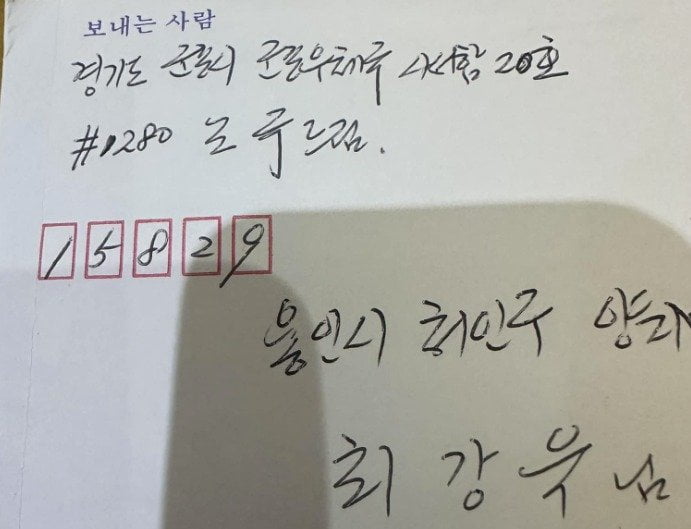 보내는 사람
경기도 군포시 군포우체국 사서함 20호
#1280 드림.
15829
용인시 처인구
최강욱님